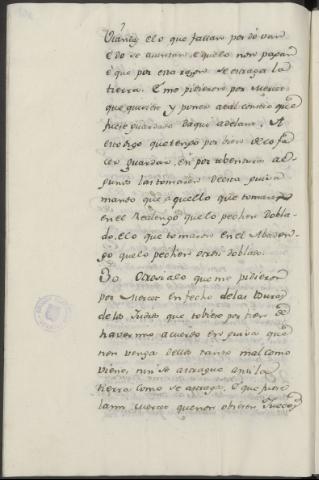 viandas e lo que fallan por dó van
e do se ayuntan, e que lo non pagan
e que por esta razon se estraga la
tierra. E mo pidieron por merced
que quisiese y poner atal consejo que
fuese guardado daqui adelante. A
esto digo que tengo por bien de lo fa
cer guardar, en por ubentura al
gunos las tomaren de esta guisa
mando que aquello que tomaren
en el Realengo que lo pechen dobla
do, e lo que tomaren en el Abaden
go que lo pechen otrosi doblado.
30 Otrosi a lo que me pidieron
por merced en fecho de las Deudas
de los Judios que tobiese por bien de
haver mio acuerdo en guisa que
non venga dellas tanto mal como
viene, nin se astrague ansi la
tierra como se astraga, e que pidie